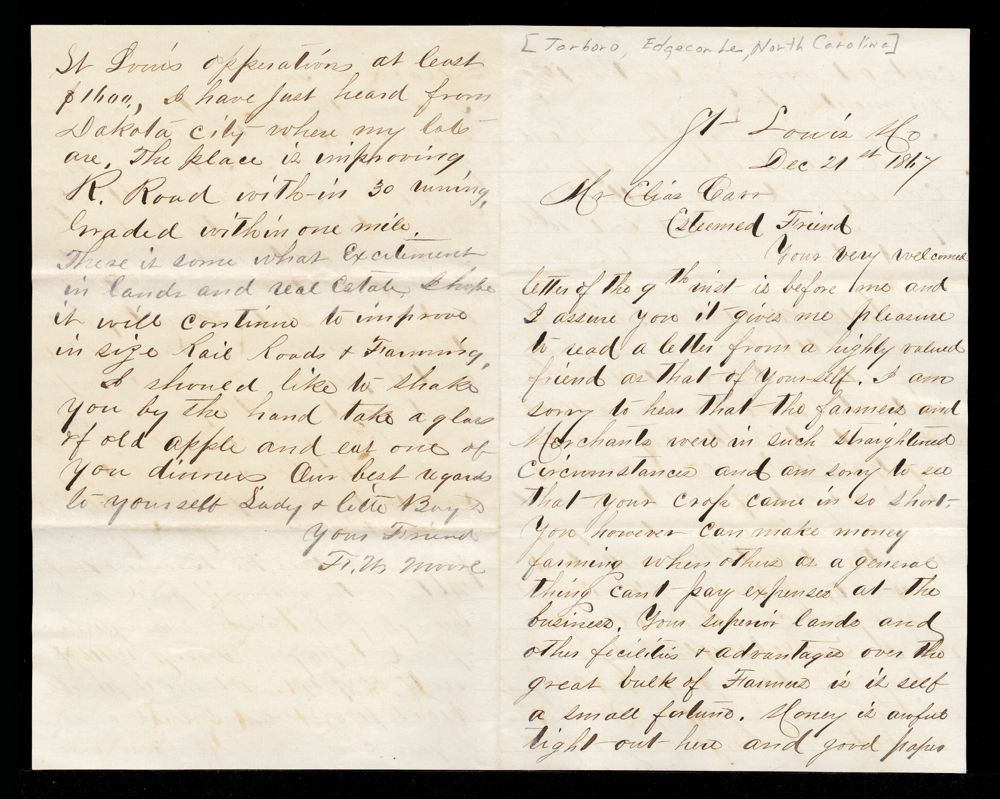 [Tarboro, Edgecombe, North Carolina]
St Louis Mo
Dec 21st 1867
Mr Elias Carr
Esteemed Friend
Your very welcomed
letter of the 9th inst is before me and
I assure you it gives me pleasure
to read a letter from a highly valued
friend as that of yourself. I am
sorry to hear that the farmers and
Merchants were in such straightened
circumstances and am sorry to see
that your crop came in so short.
You however can make money
farming when others as a general
thing cant pay expenses at the
business. Your superior lands and
other fecilities & advantages over the
great bulk of Farmers is it self
a small fortune. Money is awful
tight out here and good paper
St Louis opperations at least
$1600, I have just heard from
Dakota city where my lots
are. The place is improving
R. Road with-in 30 runing,
Graded within one mile.
There is some what Excitement
in lands and real Estate, I hope
it will continue to improve
in size Rail Roads & Farming,
I should like to shake
you by the hand take a glass
of old apple and eat one of
you dinners Our best regards
to yourself Lady & little Boys
Your Friend
Moore